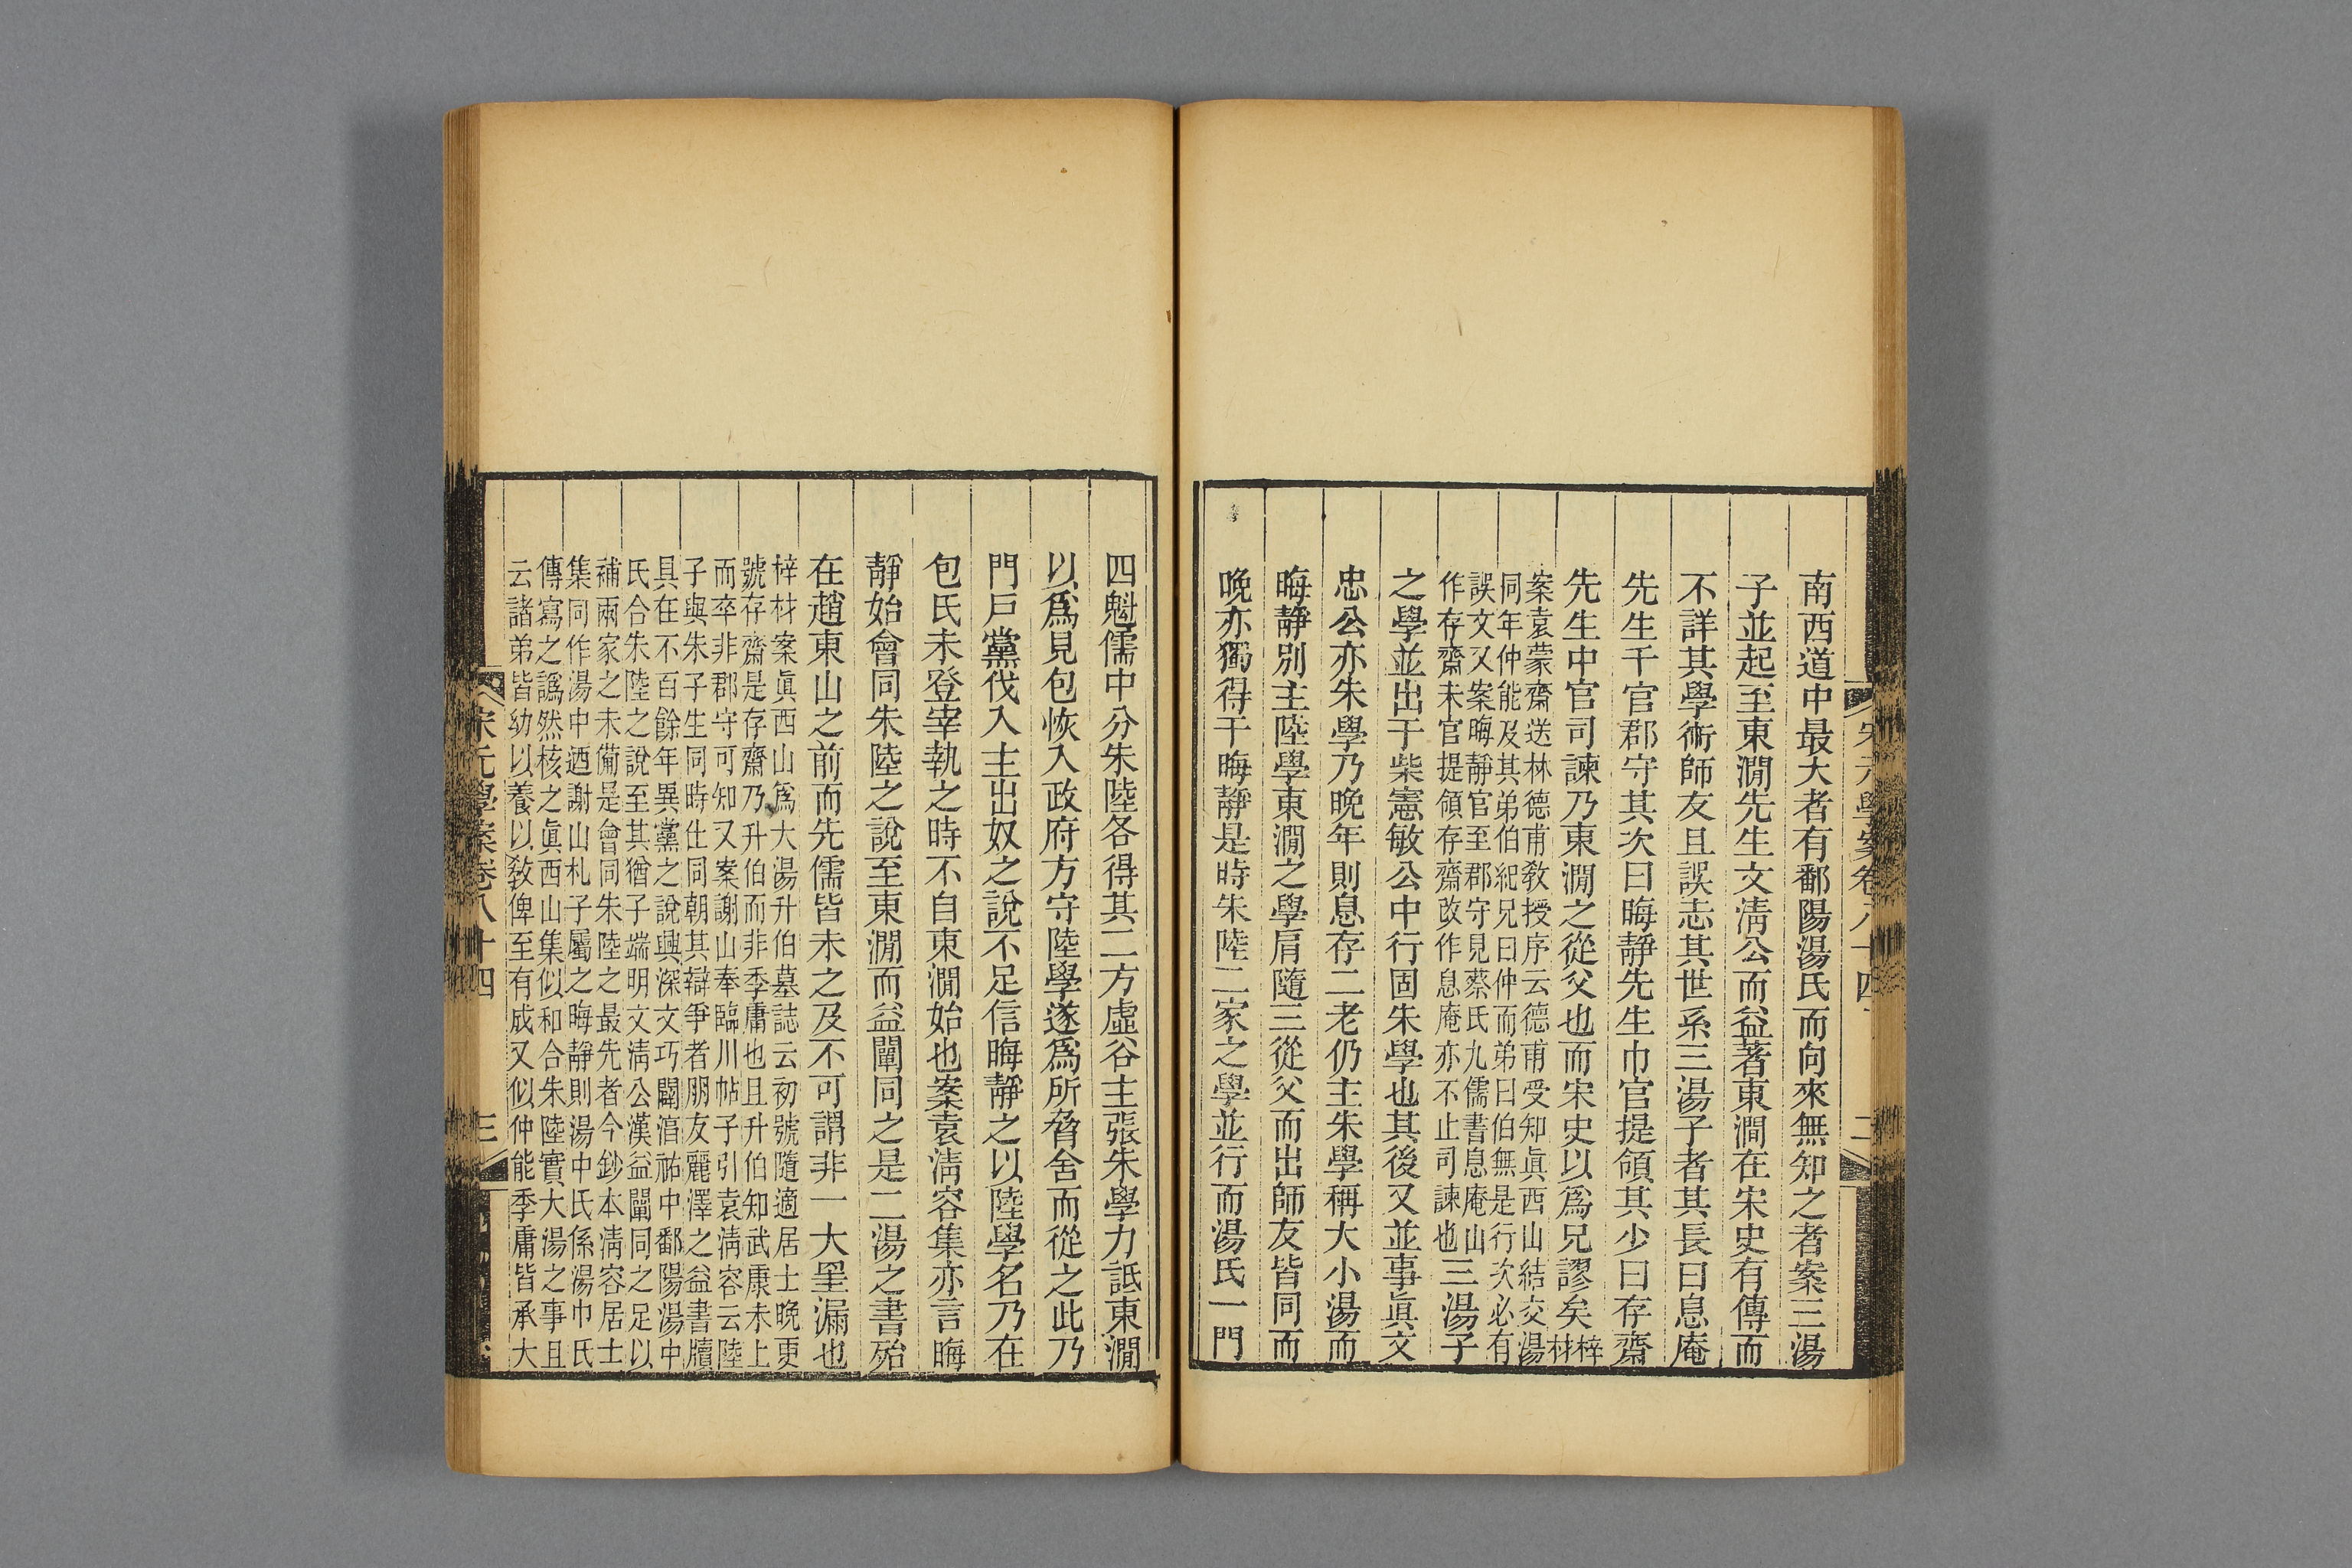 宋元學案卷八十四 二
南西道中最大者有鄱陽湯氏而向來無知之者案三湯
子並起至東澗先生文淸公而益著東澗在宋史有傳而
不詳其學術師友且誤志其世系三湯子者其長曰息庵
先生千官郡守其次曰晦靜先生巾官提領其少曰存齋
先生中官司諫乃東澗之從父也而宋史以爲兄謬矣梓材
案袁蒙齋送林德甫敎授序云德甫受知眞西山結交湯
同年仲能及其弟伯紀兄曰仲而弟曰伯無是行次必有
誤文又案晦靜官至郡守見蔡氏九儒書息庵山
作存齋未官提領存齋改作息庵亦不止司諫也三湯子
之學並出于柴憲敏公中行固朱學也其後又並事眞文
忠公亦朱學乃晚年則息存二老仍主朱學稱大小湯而
晦靜別主陸學東澗之學肩隨三從父而出師友皆同而
晚亦獨得于晦靜是時朱陸二家之學並行而湯氏一門
四魁儒中分朱陸各得其二方虛谷主張朱學力詆東澗
以爲見包恢入政府方守陸學遂爲所脅舍而從之此乃
門戸黨伐入主出奴之說不足信晦靜之以陸學名乃在
包氏未登宰執之時不自東澗始也案袁淸容集亦言晦
靜始會同朱陸之說至東澗而益闡同之是二湯之書殆
在趙東山之前而先儒皆未之及不可謂非一大罣漏也
梓材案眞西山爲大湯升伯墓誌云初號隨適居士晚更
號存齋是存齋乃升伯而非季庸也且升伯知武康未上
而卒非郡守可知又案謝山奉臨川帖子引袁淸容云陸
子與朱子生同時仕同朝其辯爭者朋友麗澤之益書牘
具在不百餘年異黨之說興深文巧闢淳祐中鄱陽湯中
氏合朱陸之說至其猶子端明文淸公漢益闡同之足以
補兩家之未備是會同朱陸之最先者今鈔本淸容居士
集同作湯中迺謝山札子屬之晦靜則湯中氏係湯巾氏
傳寫之譌然核之眞西山集似和合朱陸實大湯之事且
云諸弟皆幼以養以敎俾至有成又似仲能季庸皆承大
宋元學案卷八十四 三